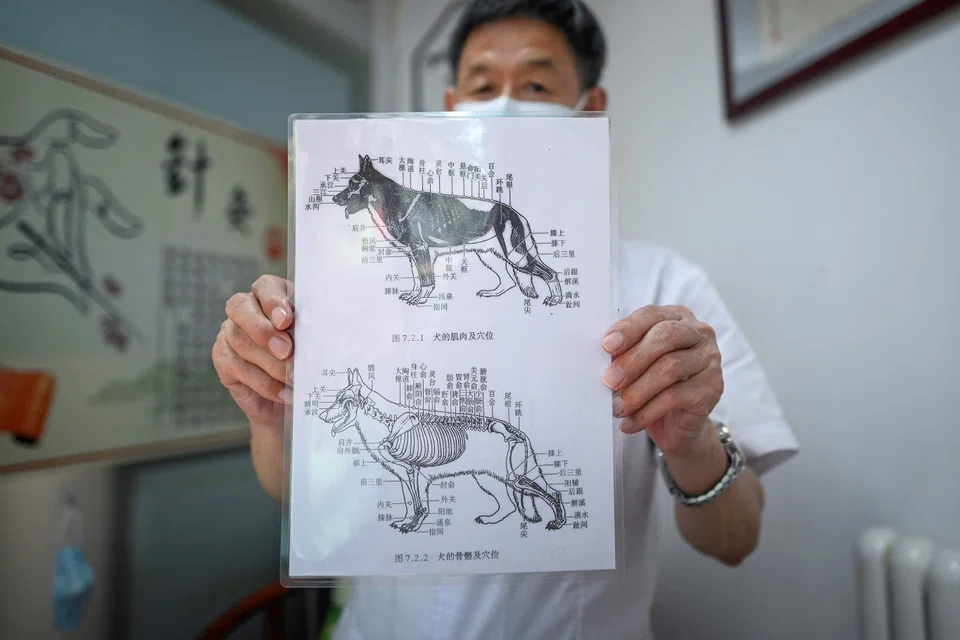 针
灸
耳尖
上关
下关
承泣
三江
山根
水沟
大椎
陶道
身柱
心俞
灵台
中枢
悬枢
命门
阳关
关后
百会
环跳
尾根
肩井
抢风
肘俞
前三里
内关
膝脉
中脘
天枢
外关
涌泉
指间
膝上
膝下
后三里
后跟
解溪
滴水
趾间
尾尖
图 7.2.1 犬的肌肉及穴位
耳尖
翳风
上关
下关
承泣
大椎
陶道
身柱
心俞
灵台
肝俞
百会
尾根
环跳
肩井
肩外髃
郄上
前三里
内关
膝脉
肘俞
外关
阳池
涌泉
指间
膝上
膝下
后三里
阳辅
后跟
解溪
滴水
趾间
尾尖
图 7.2.2 犬的骨骼及穴位